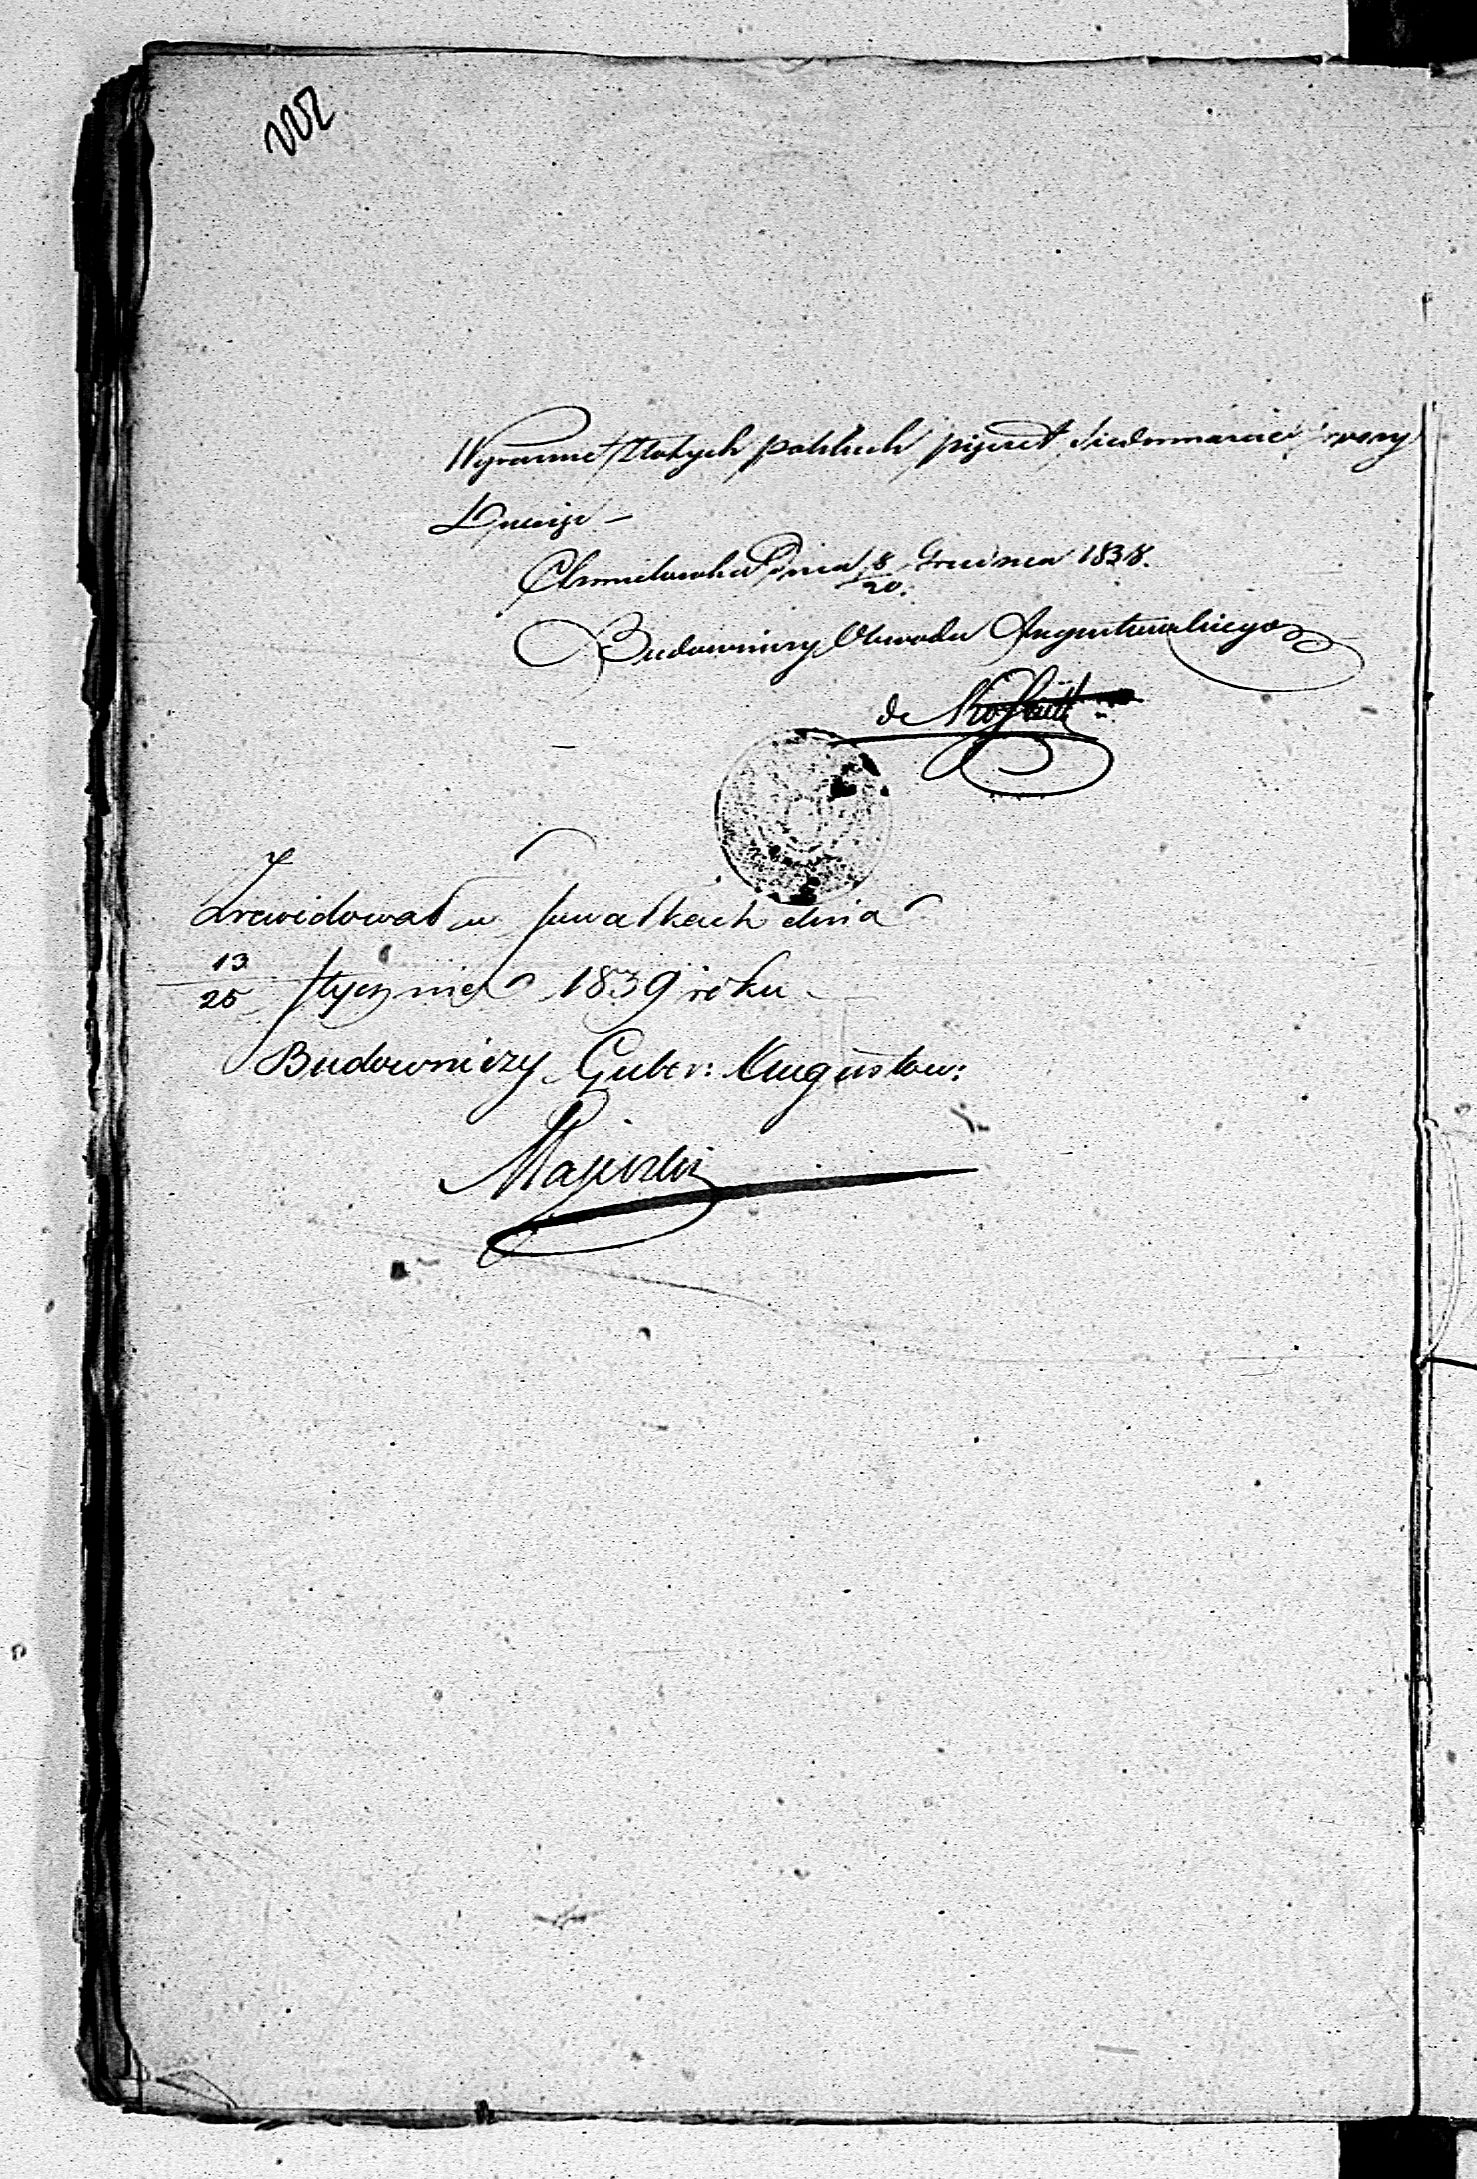 Wyraźnie Złotych polskich pięćset siedemnaście groszy
Chmielówka Dnia 8/20 Grudnia 1838.
Budowniczy Obwodu Augustowskiego
de
Zrewidował w Suwałkach dnia
13/25 stycznia 1839 roku
Budowniczy Guber: Augustow:
Majewski